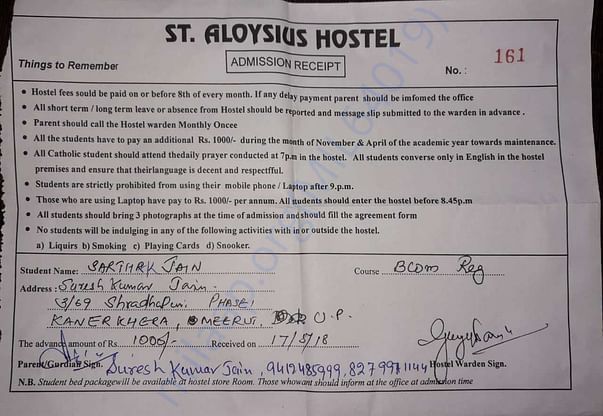 ST. ALOYSIUS HOSTEL
Things to Remember
ADMISSION RECEIPT
No. : 161
• Hostel fees sould be paid on or before 8th of every month. If any delay payment parent should be imfomed the office
• All short term / long term leave or absence from Hostel should be reported and message slip submitted to the warden in advance .
• Parent should call the Hostel warden Monthly Oncee
• All the students have to pay an additional Rs. 1000/- during the month of November & April of the academic year towards maintenance.
• All Catholic student should attend thedaily prayer conducted at 7p.m in the hostel. All students converse only in English in the hostel
premises and ensure that theirlanguage is decent and respectfful.
• Students are strictly prohibited from using their mobile phone / Laptop after 9.p.m.
• Those who are using Laptop have pay to Rs. 1000/- per annum. All students should enter the hostel before 8.45p.m
• All students should bring 3 photographs at the time of admission and should fill the agreement form
• No students will be indulging in any of the following activities with in or outside the hostel.
a) Liquirs b) Smoking c) Playing Cards d) Snooker.
Student Name: SARTHAK JAIN Course BCom Reg
Address : Suresh Kumar Jain.
3/69 Shradhapuri PHASE 1
KANERKHERA, MEERUT, U.P.
The advance amount of Rs. 1000/- Received on 17/5/18
Parent/Gurdian Sign. Suresh Kumar Jain, 9412485999, 8279971144 Hostel Warden Sign.
N.B. Student bed packagewill be available at hostel store Room. Those whowant should inform at the office at admission time